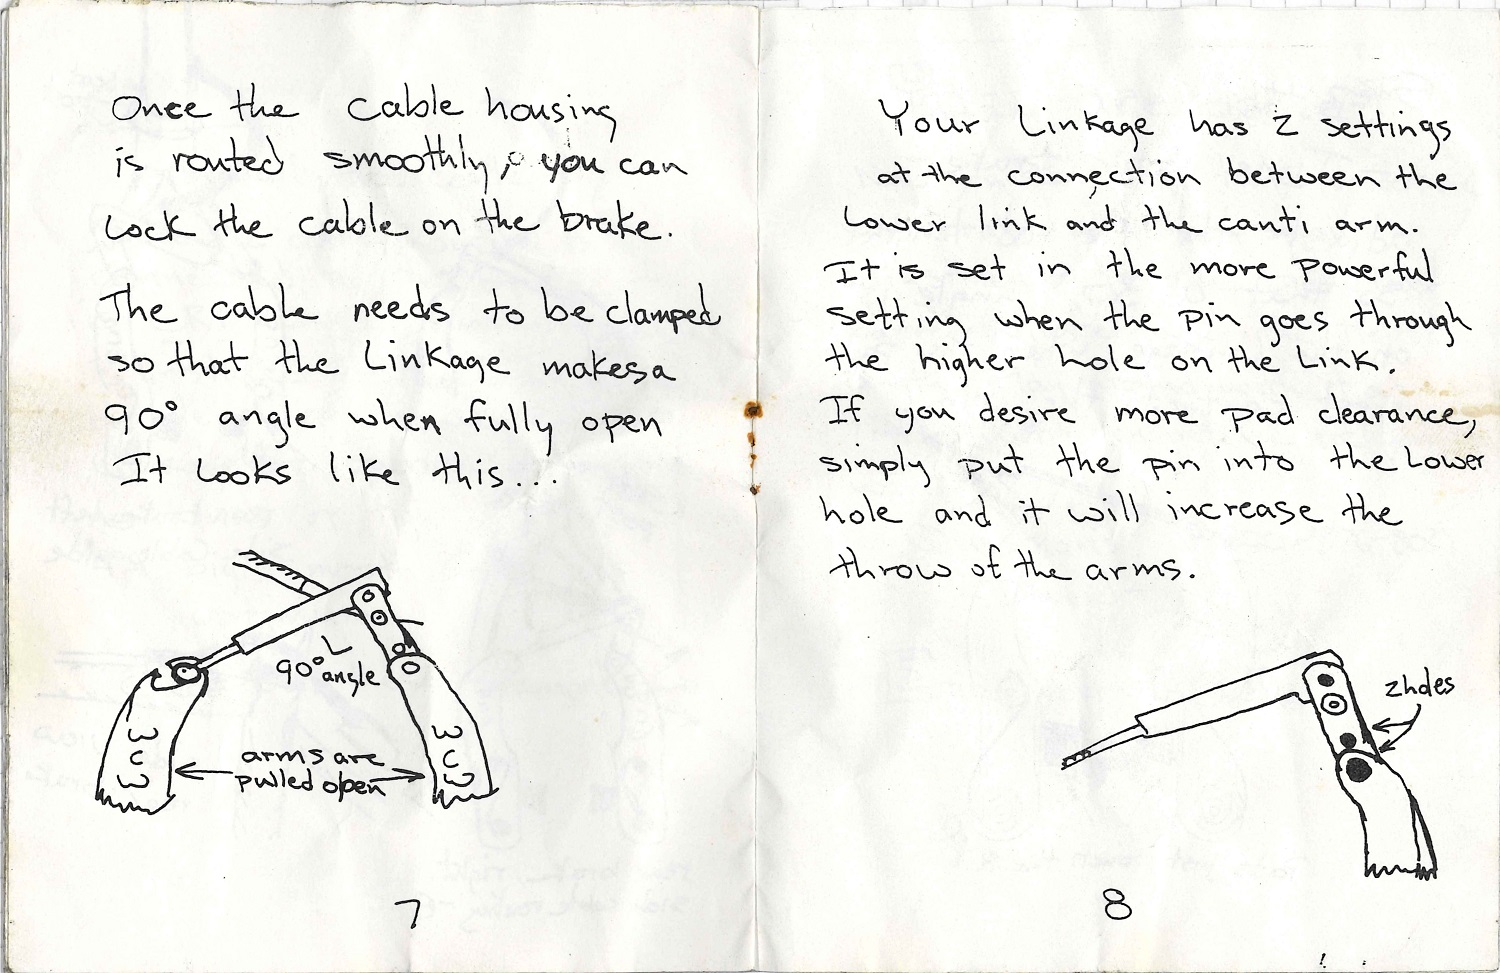 Once the cable housing
is routed smoothly, you can
Lock the cable on the brake.
The cable needs to be clamped
so that the Linkage makes a
90° angle when fully open
It Looks like this...
90° angle
W
C
W
arms are
pulled open
W
C
W
7
Your Linkage has 2 settings
at the connection between the
Lower link and the canti arm.
It is set in the more powerful
setting when the pin goes through
the higher hole on the Link.
If you desire more pad clearance,
simply put the pin into the Lower
hole and it will increase the
throw of the arms.
2 holes
8